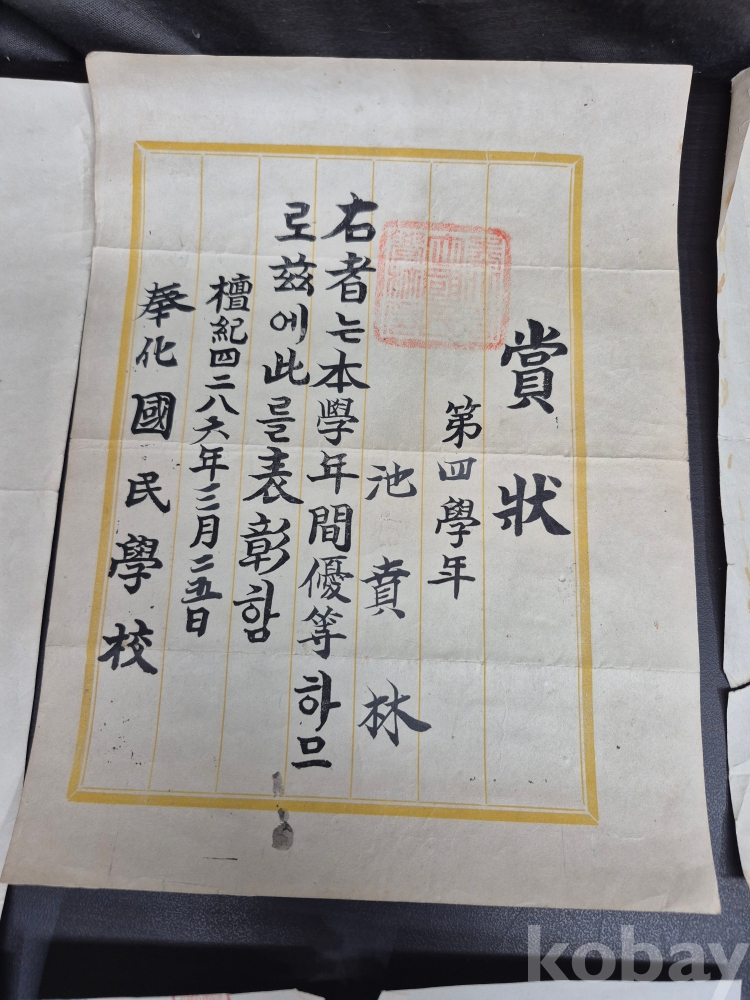 賞狀
第四學年
池賁林
右者는本學年間優等하므
로玆에此를表彰함
檀紀四二八六年三月二五日
奉化國民學校
kobay